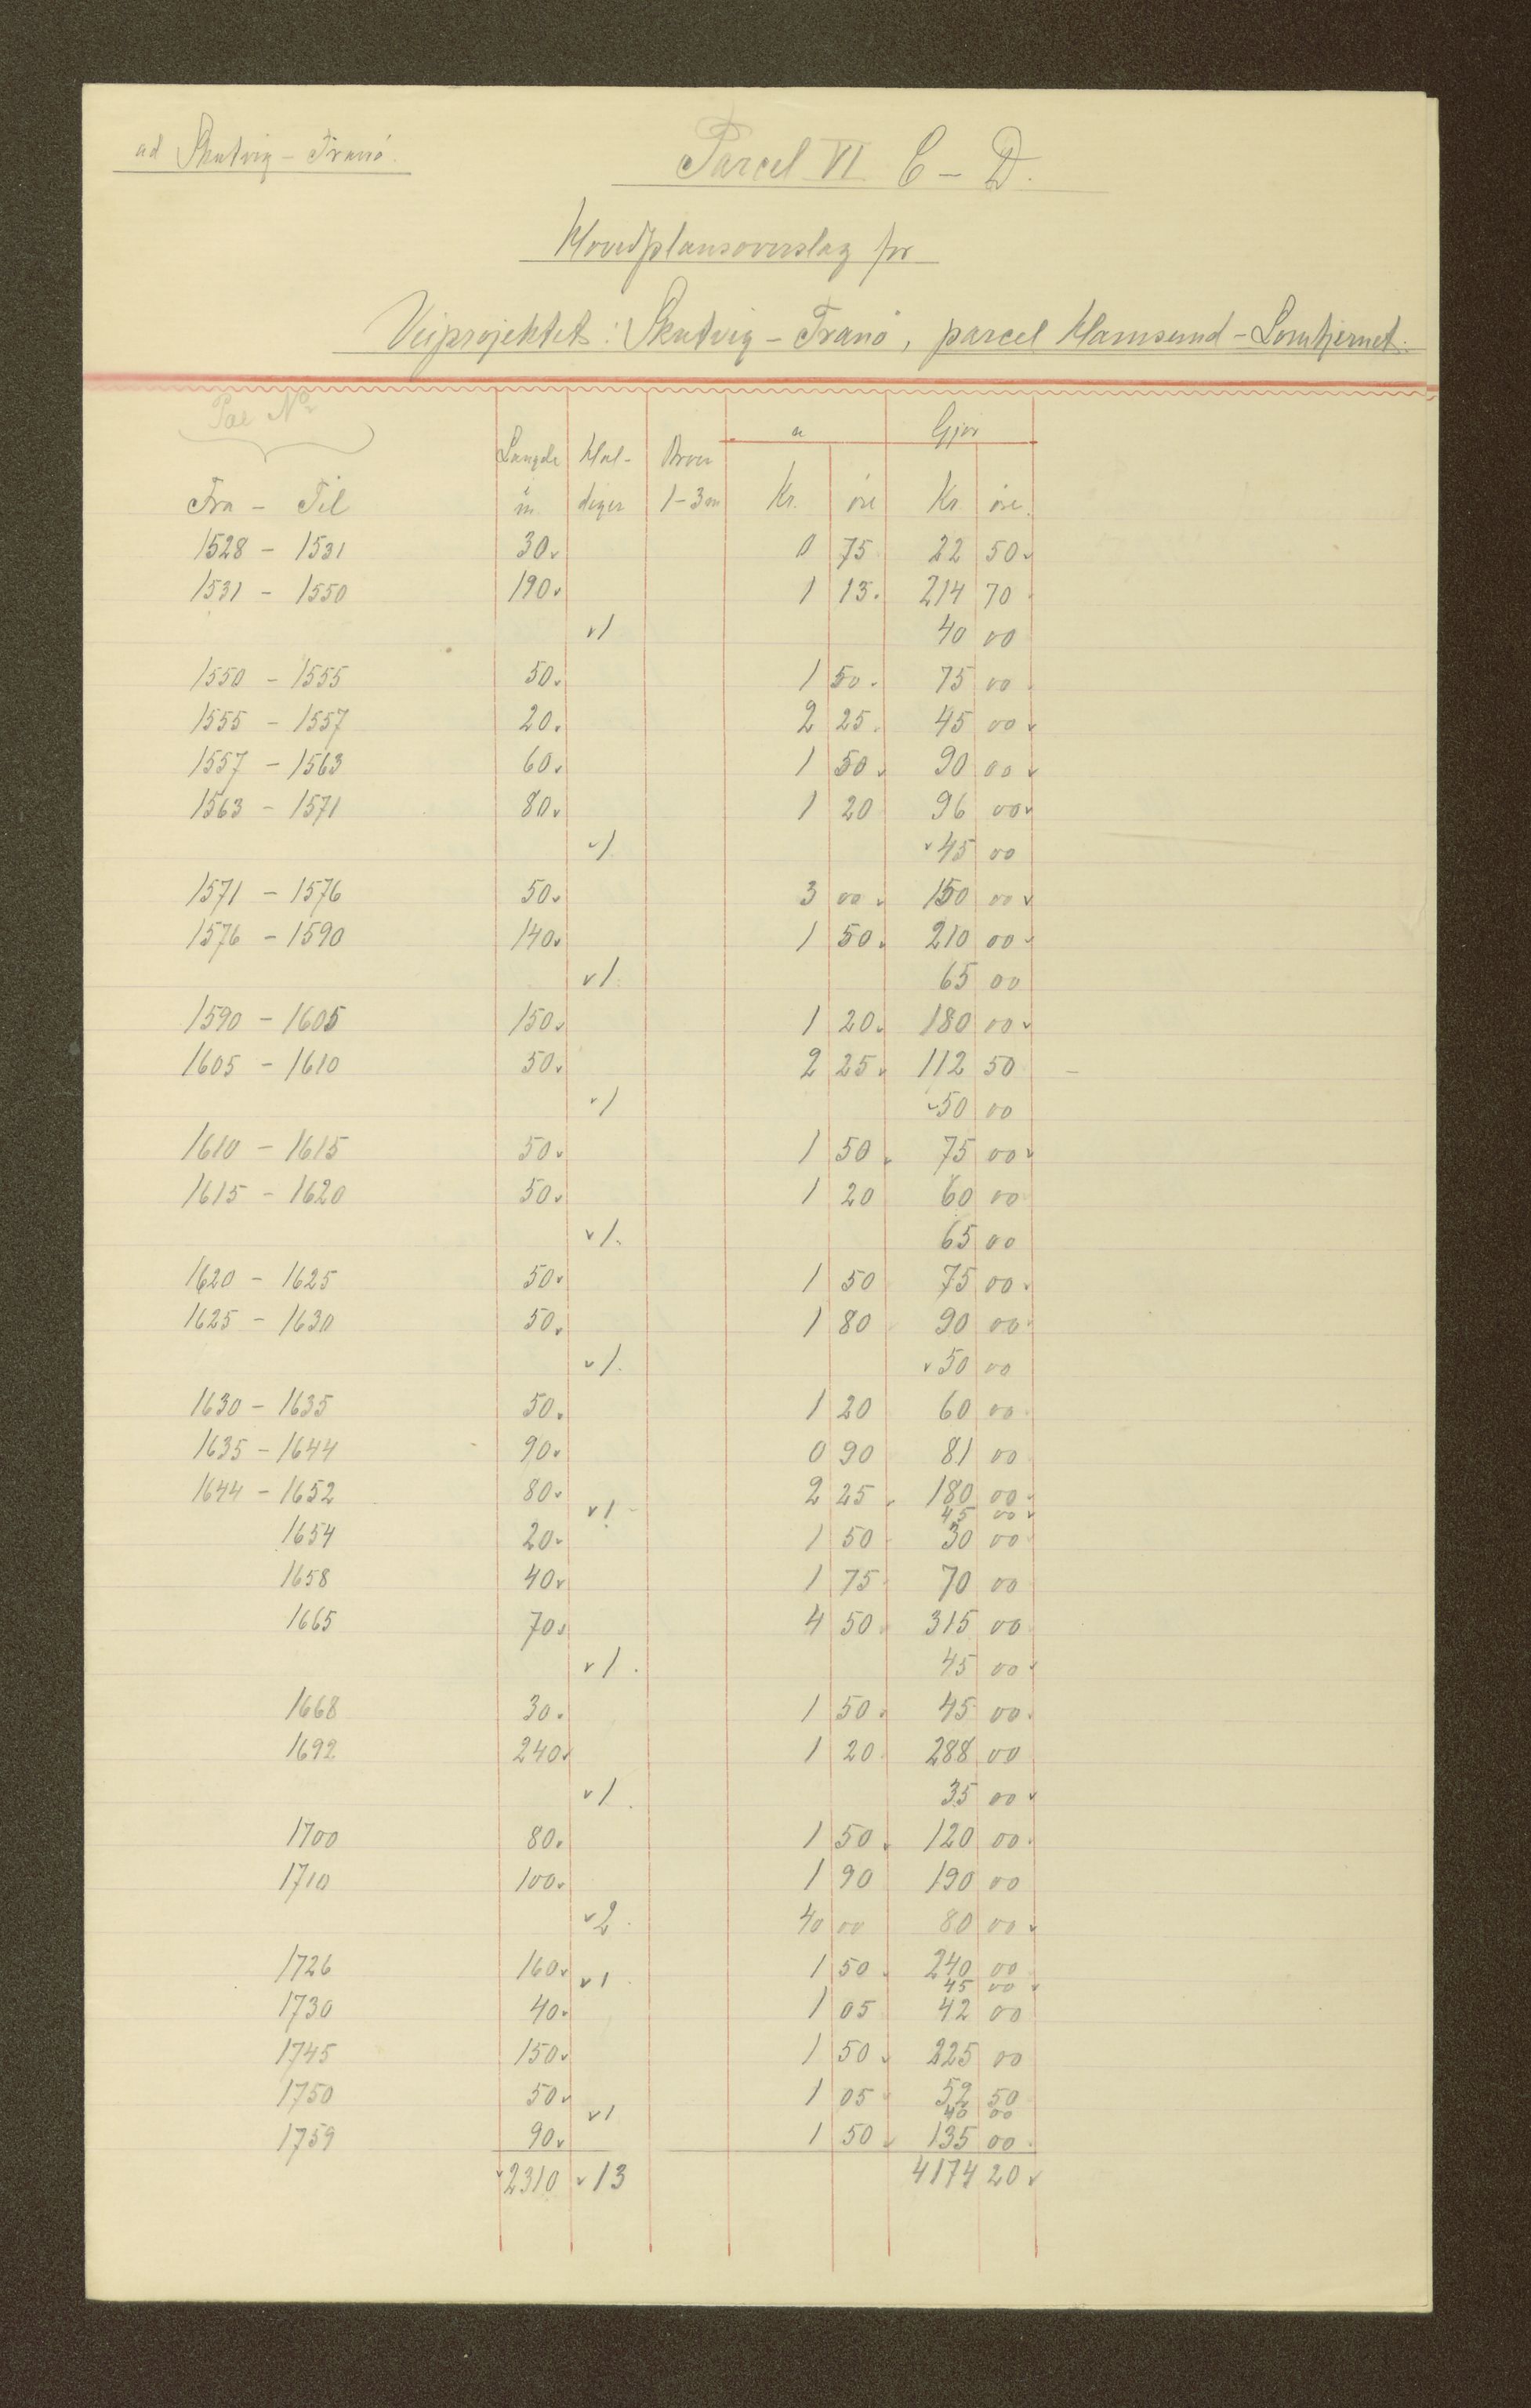 ad Skutvig - Tranö.
Parcel VI C - D.
Hovedplansoverslag for
Veiprojektet: Skutvig - Tranö, parcel Hamsund - Lomtjernet.
Pæl No
a Gjør
Længde Hul- Broer
Fra - Til m. diger 1-3m Kr. øre Kr. øre.
1528 - 1531 30 0 75 22 50
1531 - 1550 190 1 13 214 70
1 40 00
1550 - 1555 50 1 50 75 00
1555 - 1557 20 2 25 45 00
1557 - 1563 60 1 50 90 00
1563 - 1571 80 1 20 96 00
1 45 00
1571 - 1576 50 3 00 150 00
1576 - 1590 140 1 50 210 00
1 65 00
1590 - 1605 150 1 20 180 00
1605 - 1610 50 2 25 112 50
1 50 00
1610 - 1615 50 1 50 75 00
1615 - 1620 50 1 20 60 00
1 65 00
1620 - 1625 50 1 50 75 00
1625 - 1630 50 1 80 90 00
1 50 00
1630 - 1635 50 1 20 60 00
1635 - 1644 90 0 90 81 00
1644 - 1652 80 2 25 180 00
1 45 00
1654 20 1 50 30 00
1658 40 1 75 70 00
1665 70 4 50 315 00
1 45 00
1668 30 1 50 45 00
1692 240 1 20 288 00
1 35 00
1700 80 1 50 120 00
1710 100 1 90 190 00
2 40 00 80 00
1726 160 1 50 240 00
1 45 00
1730 40 1 05 42 00
1745 150 1 50 225 00
1750 50 1 05 52 50
1 40 00
1759 90 1 50 135 00
2310 13 4174 20